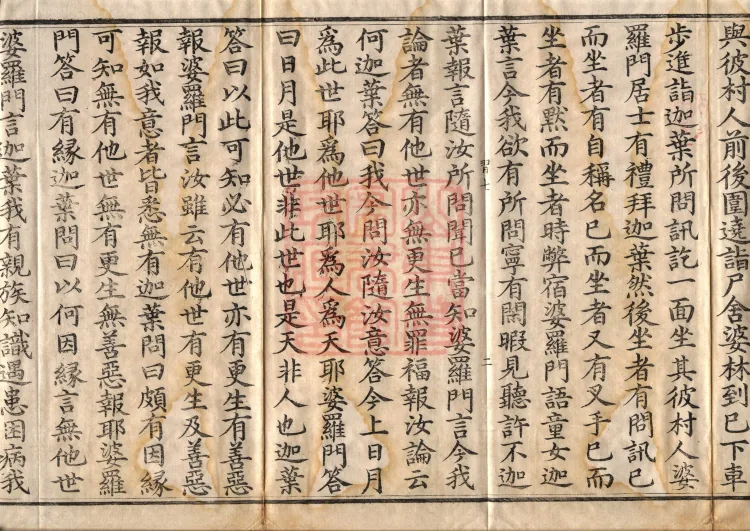 與彼村人前後圍遶詣尸舍婆林到已下車
步進詣迦葉所問訊訖一面坐其彼村人婆
羅門居士有禮拜迦葉然後坐者有問訊已
而坐者有自稱名已而坐者又有叉手已而
坐者有默而坐者時弊宿婆羅門語童女迦
葉言今我欲有所問寧有閑暇見聽許不迦
習七 二
葉報言隨汝所問聞已當知婆羅門言今我
論者無有他世亦無更生無罪福報汝論云
何迦葉答曰我今問汝隨汝意答今上日月
為此世耶為他世耶為人為天耶婆羅門答
曰日月是他世非此世也是天非人也迦葉
答曰以此可知必有他世亦有更生有善惡
報婆羅門言汝雖云有他世有更生及善惡
報如我意者皆悉無有迦葉問曰頗有因緣
可知無有他世無有更生無善惡報耶婆羅
門答曰有緣迦葉問曰以何因緣言無他世
婆羅門言迦葉我有親族知識遇患困病我